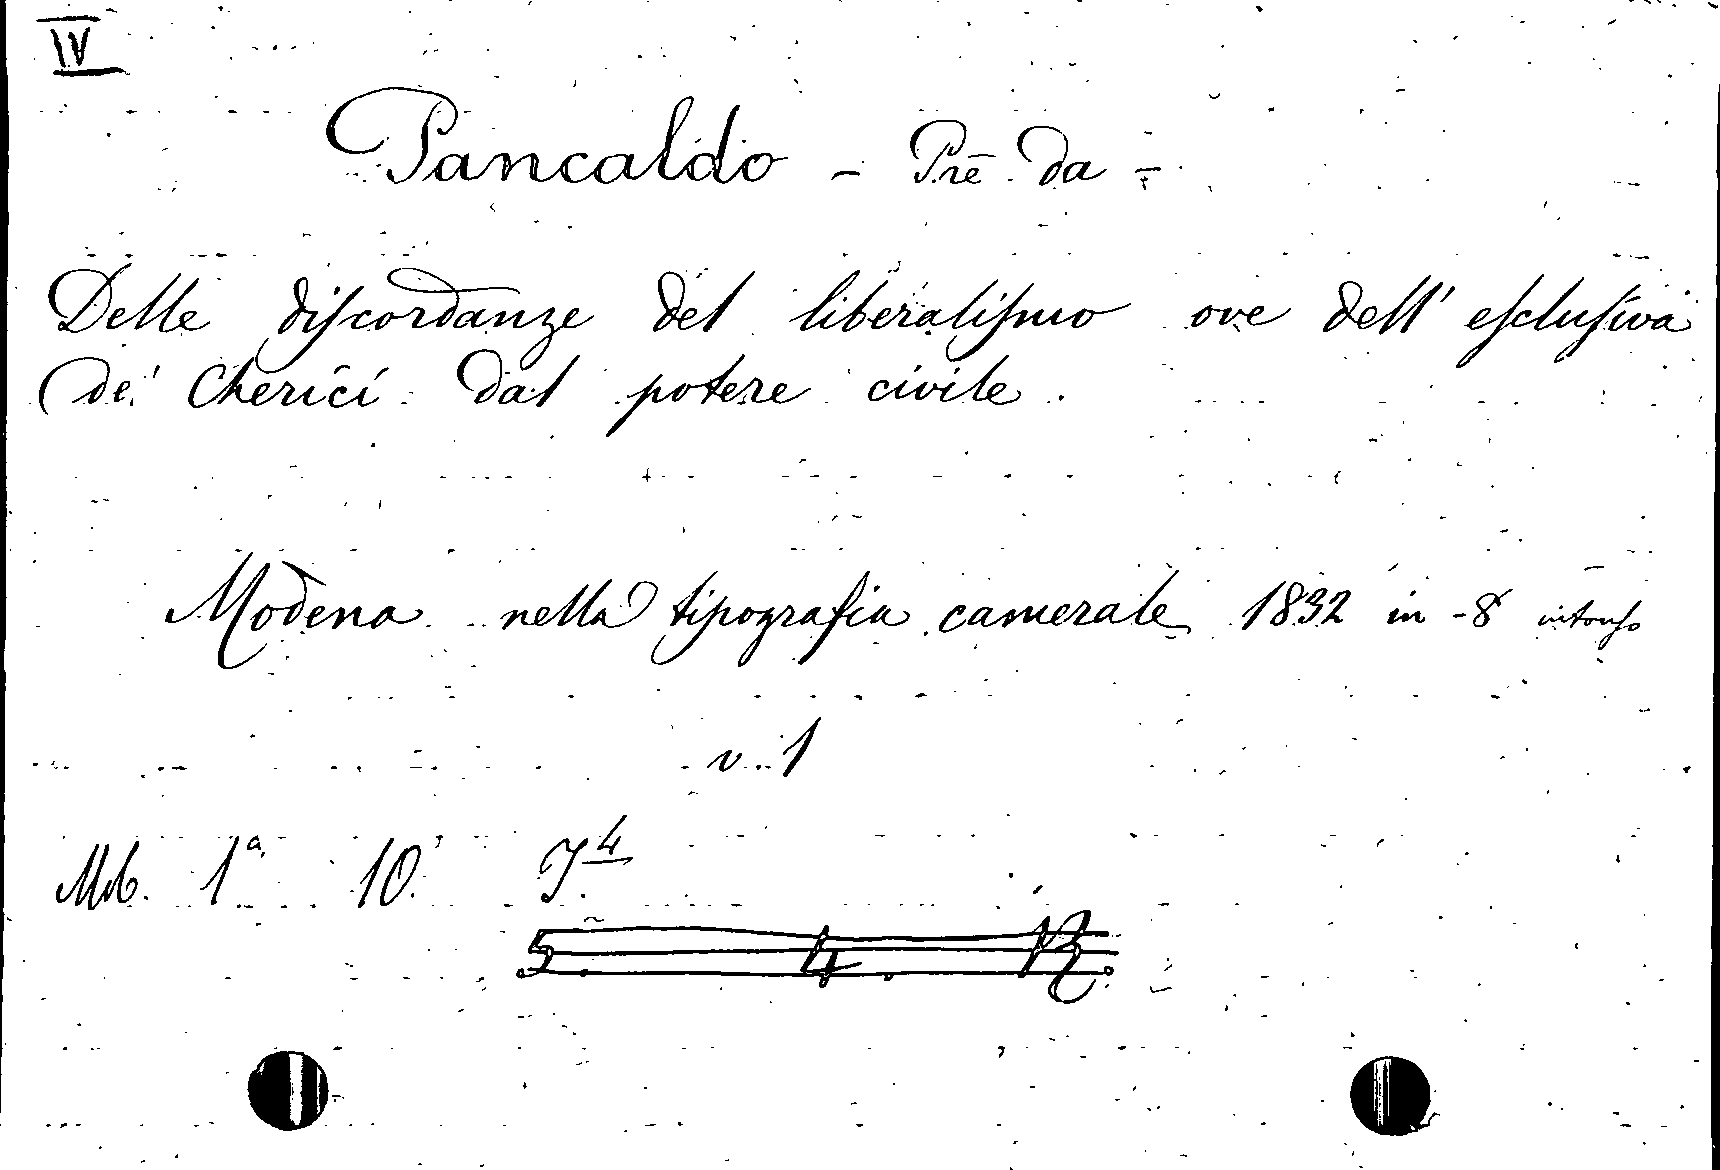 IV
Pancaldo - Pre Da -
Delle discordanze del liberalismo ove dell' esclusiva
de' Cherici dal potere civile.
Modena nella tipografia camerale 1832 in -8 intonso
v. 1
Mb. 1a 10
5 4